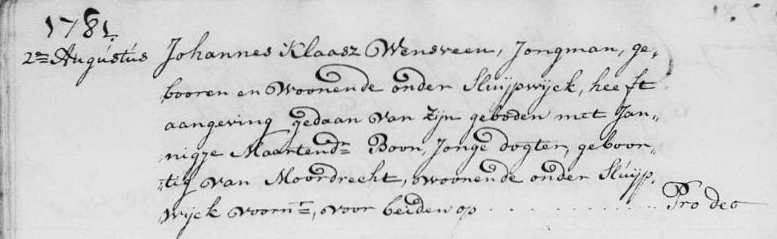 1781.
2en Augustus Johannes Klaasz Wensveen, Jongman, ge-
booren en Woonende onder Sluijpwijck, heeft
aangeving gedaan van zijn geboden met Jan-
nigje Maartendr Boon, Jonge dogter, geboor-
tig van Moordrecht, woonende onder Sluijp-
wijck voornt, voor beiden op . . . . . . . . . . . Pro deo